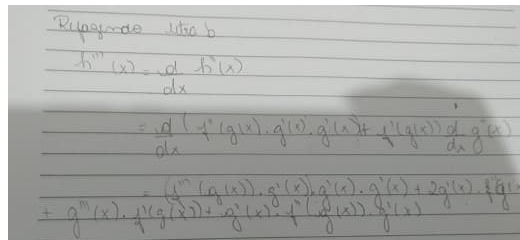 Resposta letra b
h'''(x) = d/dx h''(x)
= d/dx (f''(g(x)).g'(x).g'(x)+ f'(g(x)) d/dx g'(x)
= (f'''(g(x)).g'(x).g'(x).g'(x) + 2g'(x).f''(g(x
+ g'''(x).f'(g(x))+ g''(x).f''(g(x)).g'(x)